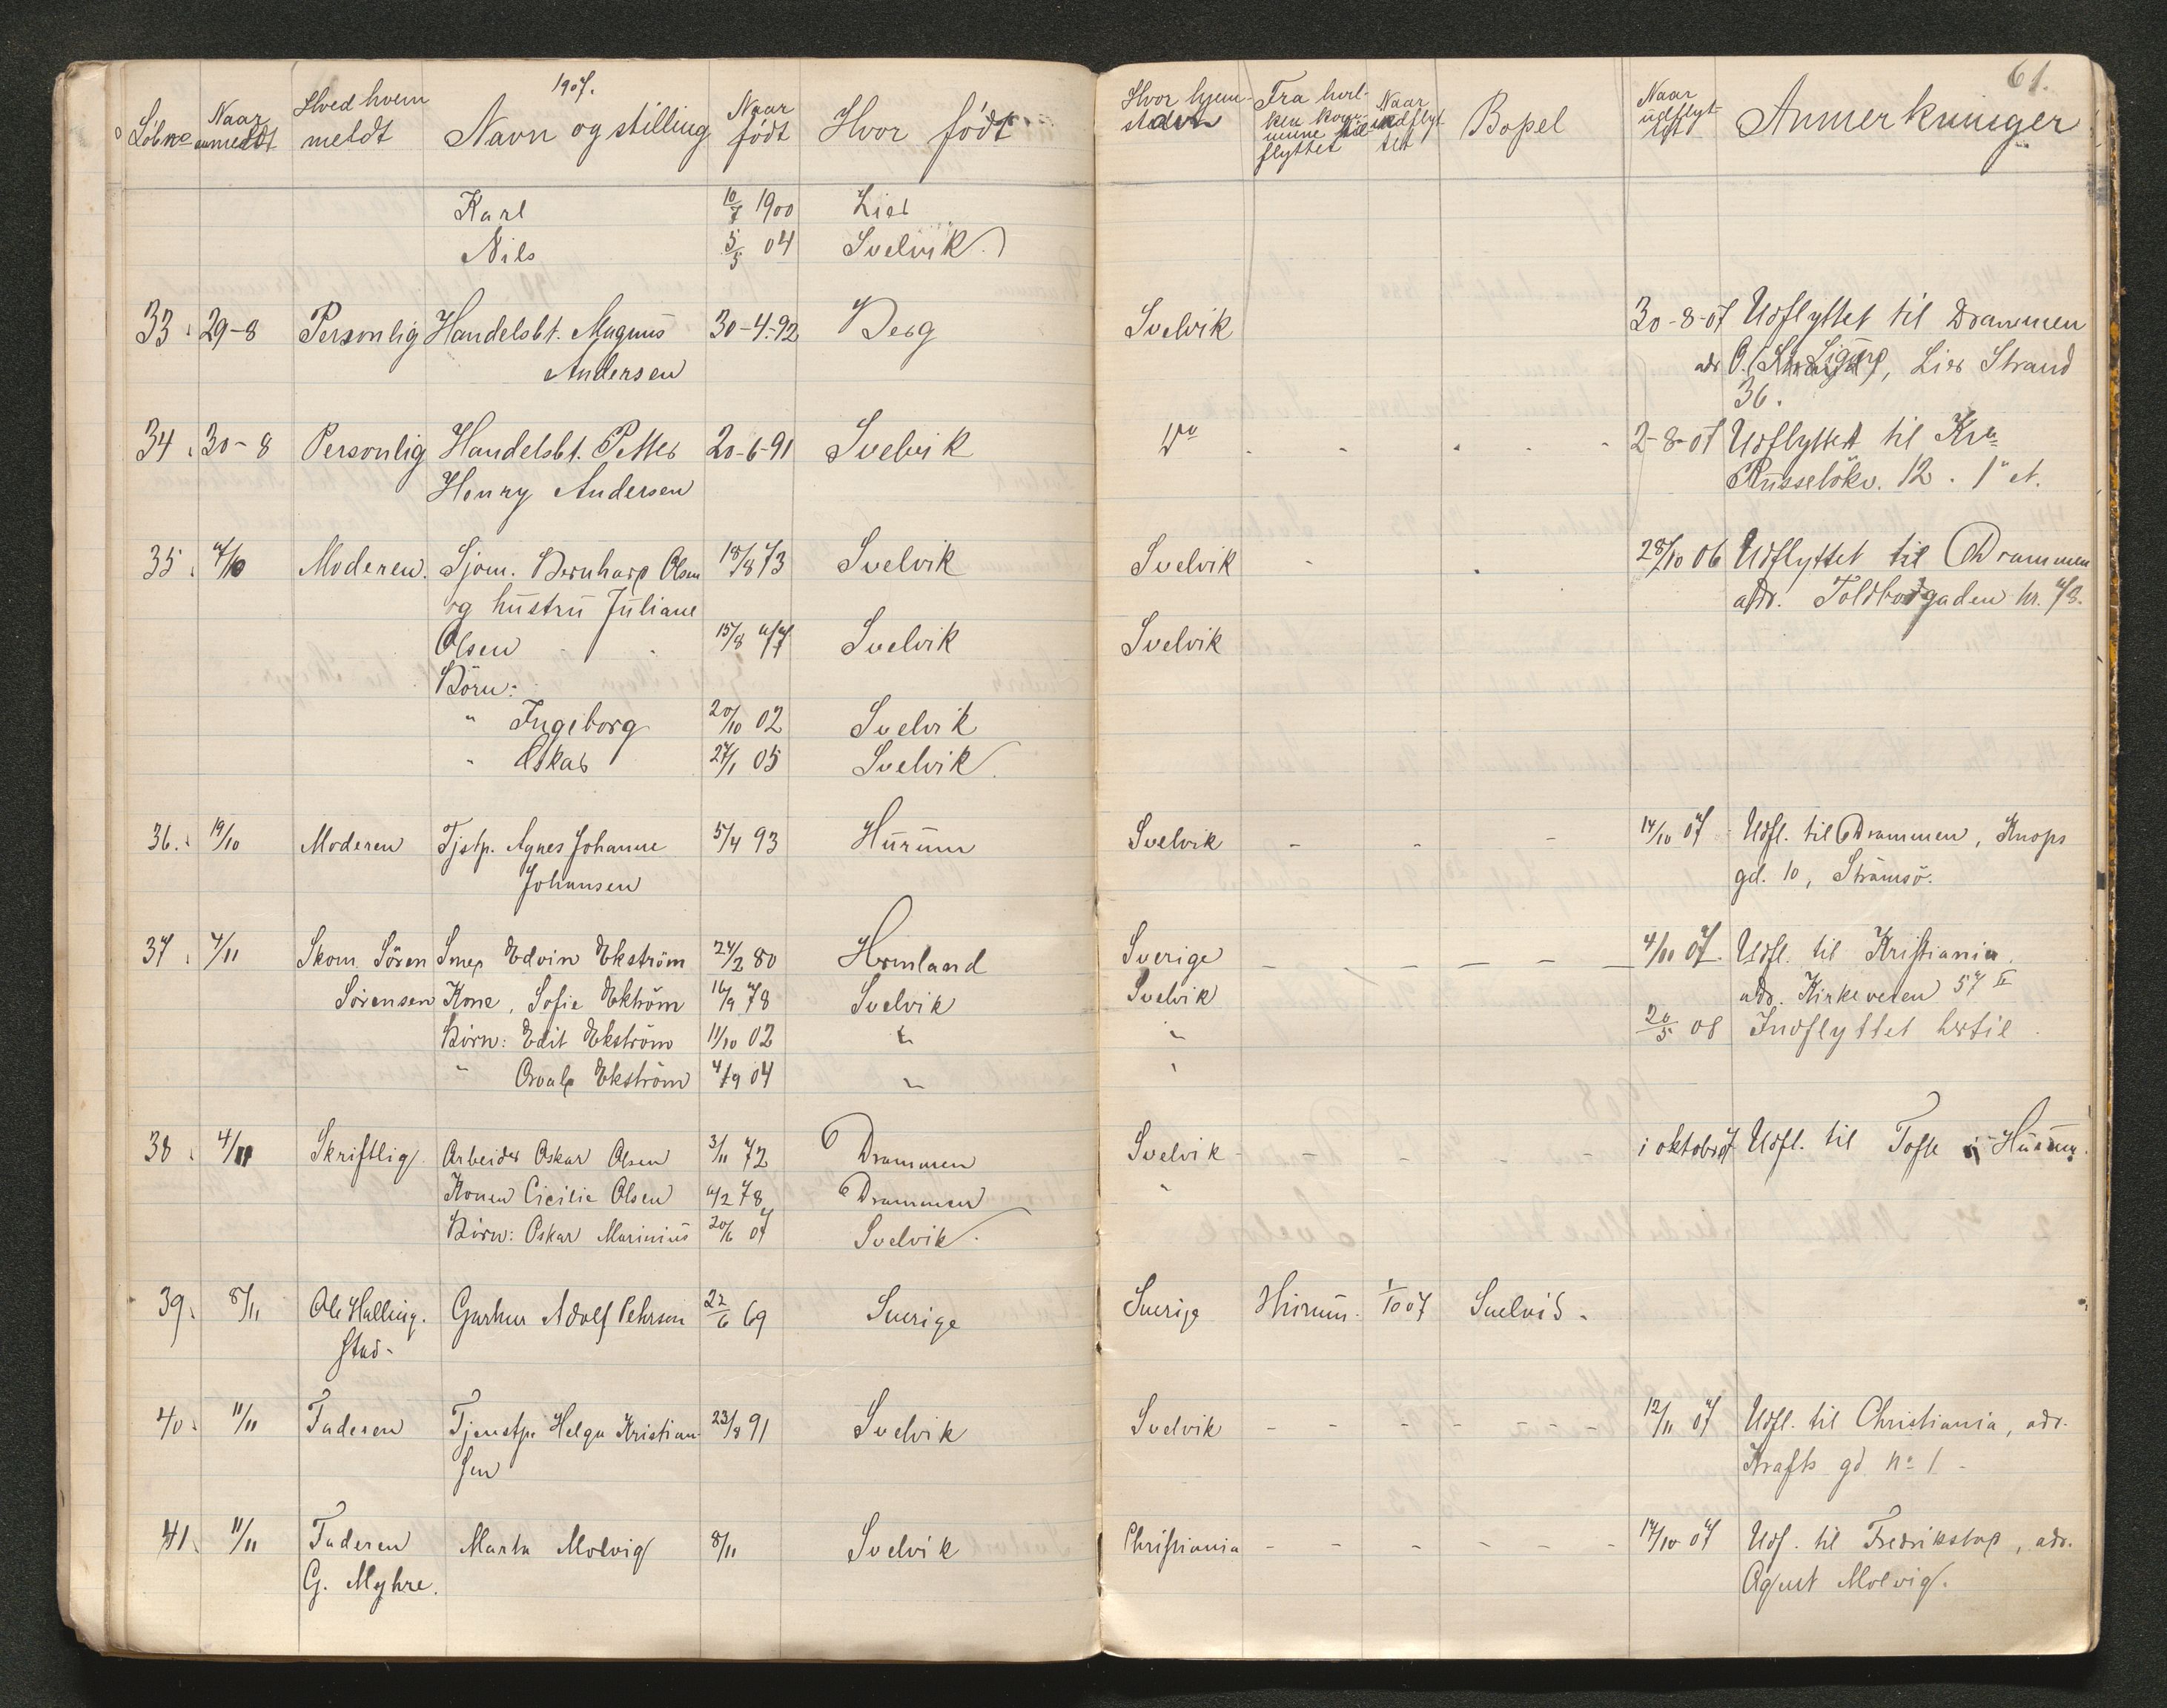 1907.
61.
Löbno Naar anmeldt Hved hvem meldt Navn og stilling Naar født Hvor født Hvor hjem- Fra hvil- ken kom- mune til- flyttet Naar indflyt tet Bopel Naar udflyt tet Anmerkninger
Karl 10/7 1900 Lier
Nils 5/5 04 Svelvik
33 29-8 Personlig Handelsbt. Magnus 30-4-92 Berg Svelvik 30-8-07 Udflyttet til Drammen
Andersen adr O. Lier Strand
36.
34 30-8 Personlig Handelsbt. Petter 20-6-91 Svelvik Do - - - - 2-8-07 Udflyttet til Kra
Henry Andersen Russelökv. 12. 1" et.
35 Moderen. Sjøm. Bernhard Olsen 18/8 73 Svelvik Svelvik - - 28/10 06 Udflyttet til Drammen
og hustru Juliane adr. Toldbodgaden nr. 73.
Olsen 15/8 77 Svelvik Svelvik
Börn:
" Ingeborg 20/10 02 Svelvik
" Oskar 27/1 05 Svelvik
36. 19/10 Moderen Tjstp. Agnes Johanne 5/4 93 Hurum Svelvik - - - 14/10 07 Udfl. til Drammen, Knops
Johansen gd. 10, Strømsö.
37 4/11 Skom. Sören Smed Edvin Ekström 24/2 80 Sverige - - - - - 07. Udfl. til Kristiania.
Sörensen Kone, Sofie Ekström 16/9 78 Svelvik Svelvik adr. Kirkeveien 57 II
Börn: Edit Ekström 11/10 02 " " 20/5 08 Indflyttet hertil
" Ekström 4/9 04 " "
38 4/11 Skriftlig Arbeider Oskar Olsen 3/11 72 Drammen Svelvik - - - - i oktober Udfl. til Tofte i Hurum.
Konen Cicilie Olsen 78 Drammen "
Börn: Oskar Marinius 20/6 07 Svelvik
39. 8/11 Ole Halling. Adolf Pehrson 22/6 69 Sverige Sverige Hurum. 1/10 07 Svelvik.
stad-
40. 11/11 Faderen Tjenstp. Helga Kristian 23/8 91 Svelvik Svelvik - - - - - - 12/11 07 Udfl. til Christiania, adr.
sen Krafts gd no 1 -
41. 11/11 Faderen Marta Molvig 8/11 Svelvik Christiania - - - - - - 07 Udf. til Fredrikstad, adr.
G. Myhre. Agent Molvig.